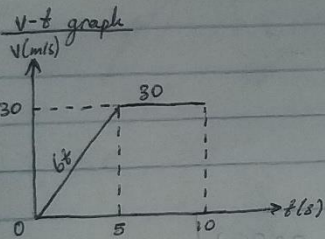 v-t graph
V(m/s)
30
30
6t
t(s)
0
5
10